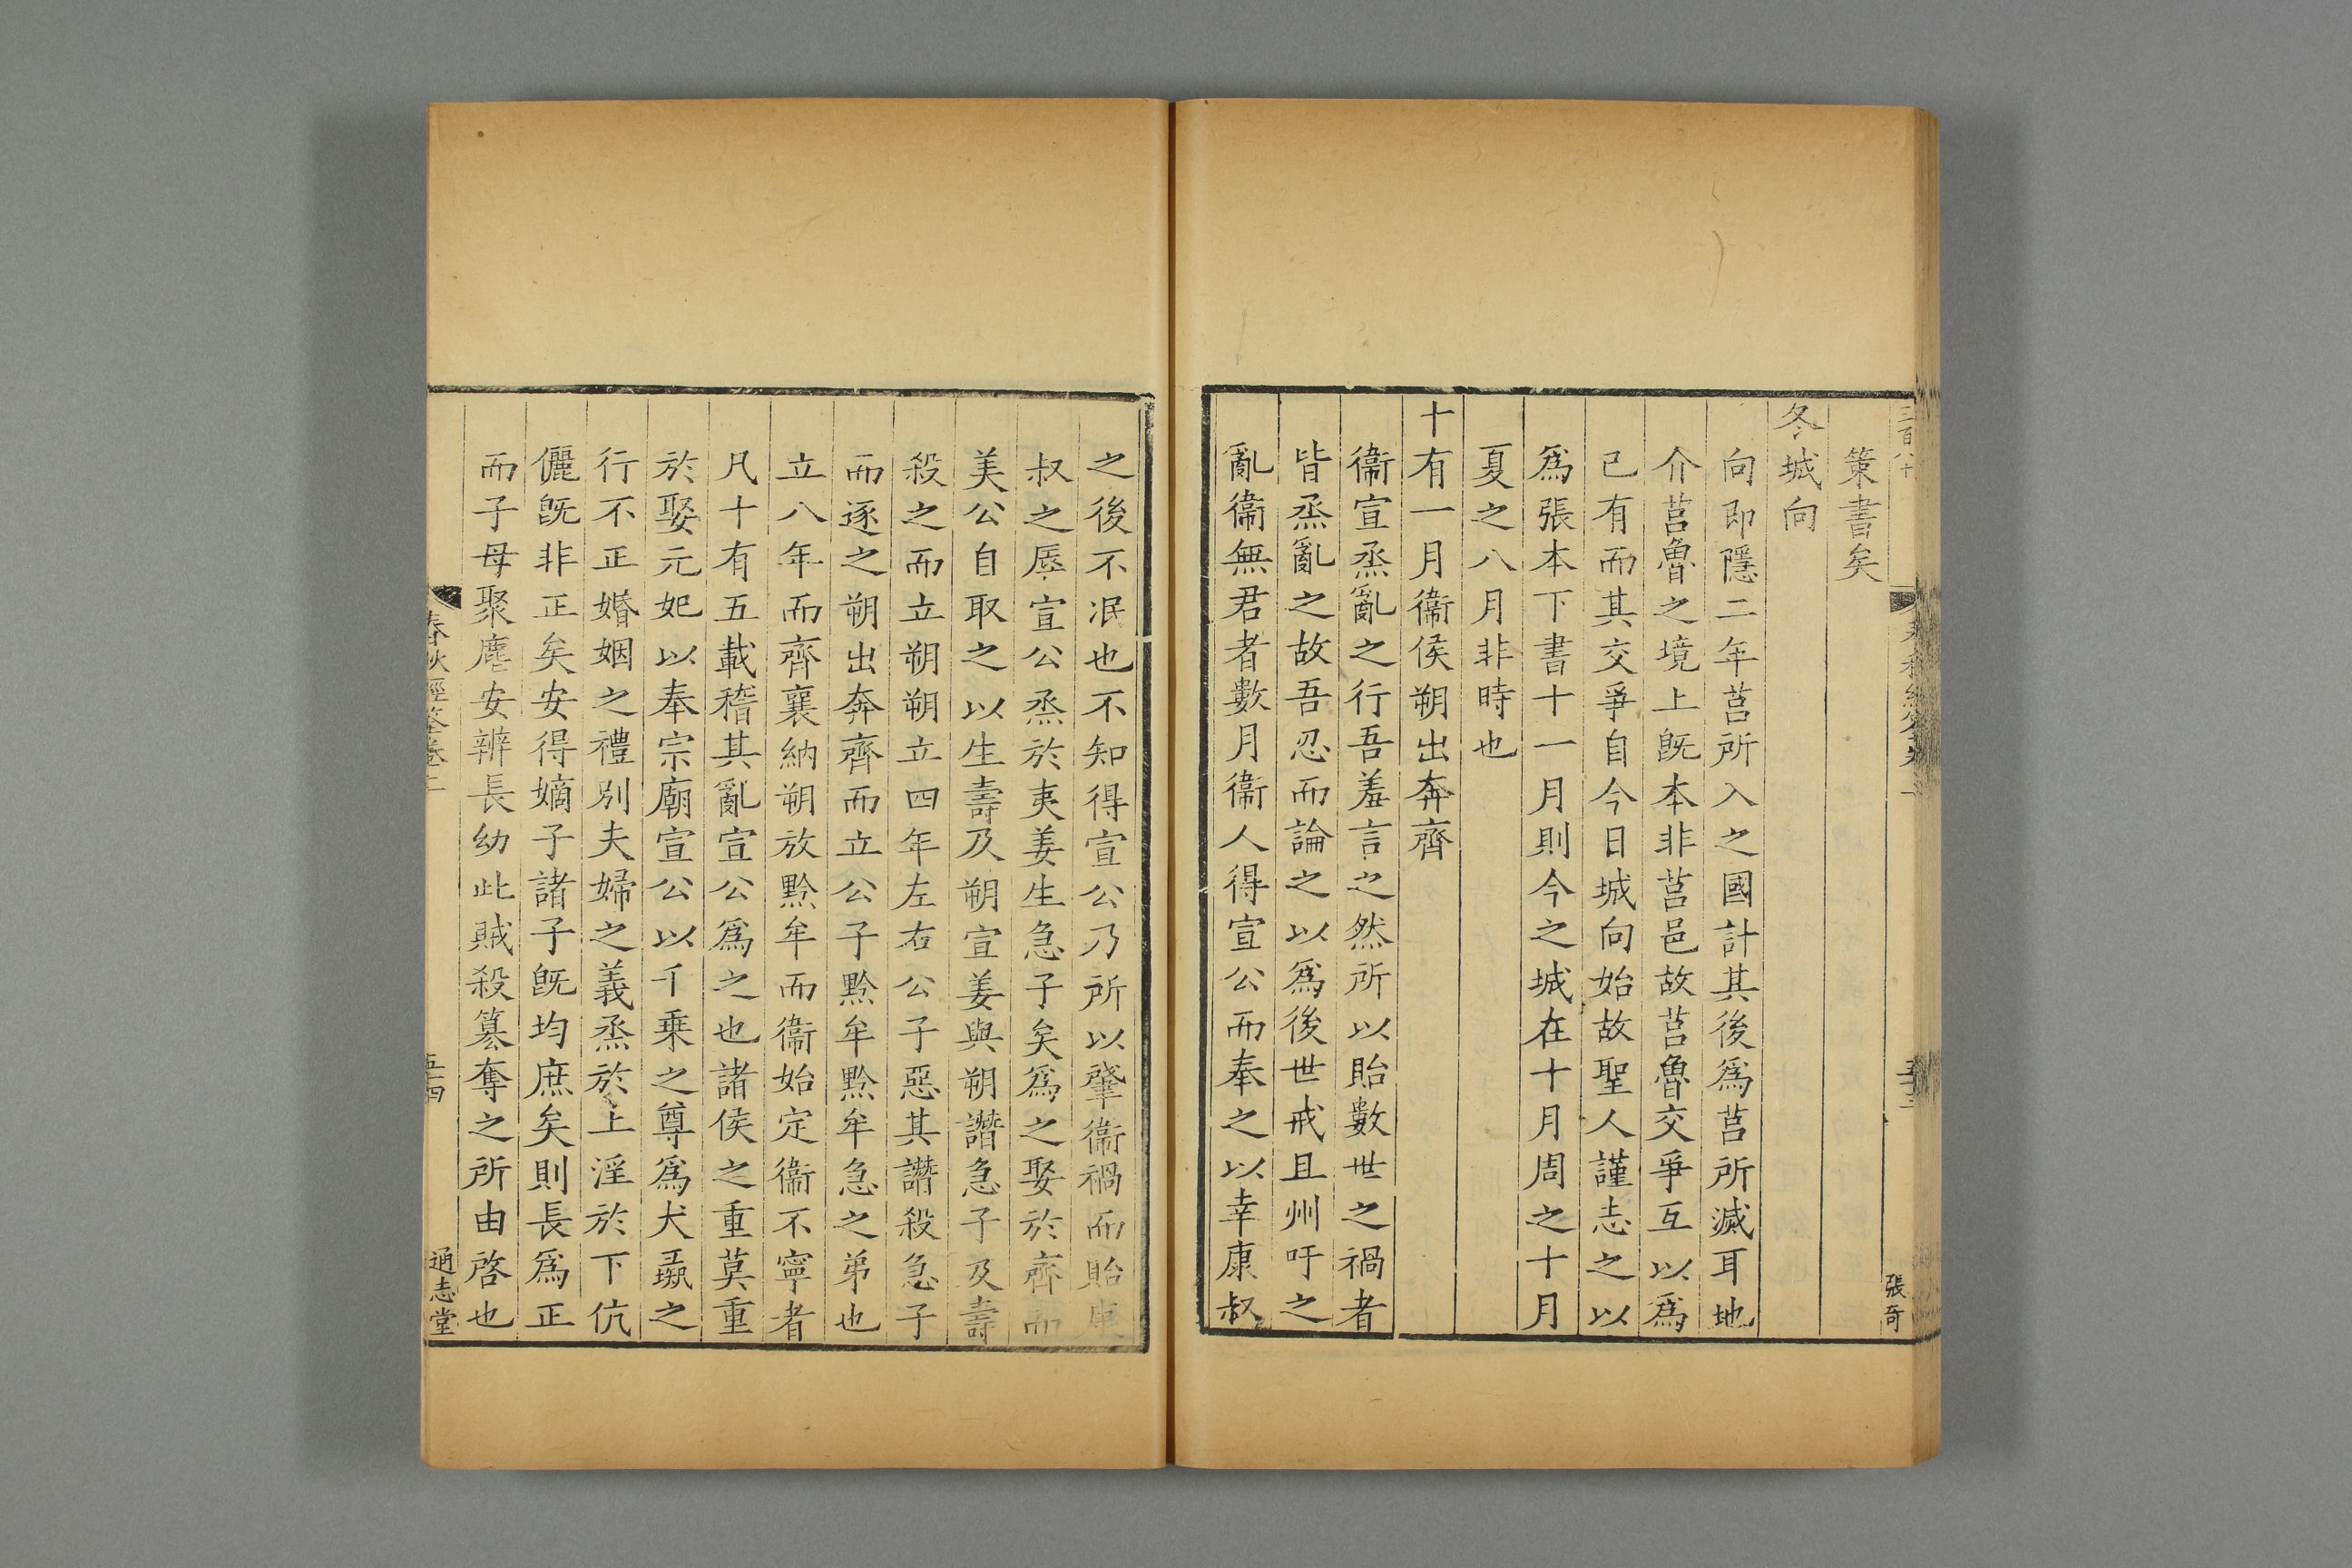 三百八十
張奇
策書矣
冬城向
向即隱二年莒所入之國計其後爲莒所滅耳地
介莒魯之境上旣本非莒邑故莒魯交爭互以爲
己有而其交爭自今日城向始故聖人謹志之以
爲張本下書十一月則今之城在十月周之十月
夏之八月非時也
十有一月衞侯朔出奔齊
衞宣烝亂之行吾羞言之然所以貽數世之禍者
皆烝亂之故吾忍而論之以爲後世戒且州吁之
亂衞無君者數月衞人得宣公而奉之以幸康叔
之後不泯也不知得宣公乃所以肇衞禍而貽康
叔之辱宣公烝於夷姜生急子矣爲之娶於齊而
美公自取之以生壽及朔宣姜與朔譖急子及壽
殺之而立朔朔立四年左右公子惡其譖殺急子
而逐之朔出奔齊而立公子黔牟黔牟急之弟也
立八年而齊襄納朔放黔牟而衞始定衞不寧者
凡十有五載稽其亂宣公爲之也諸侯之重莫重
於娶元妃以奉宗廟宣公以千乘之尊爲犬彘之
行不正婚姻之禮別夫婦之義烝於上淫於下伉
儷旣非正矣安得嫡子諸子旣均庶矣則長爲正
而子母聚麀安辨長幼此賊殺篡奪之所由啓也
春秋經筌卷二
五十四
通志堂